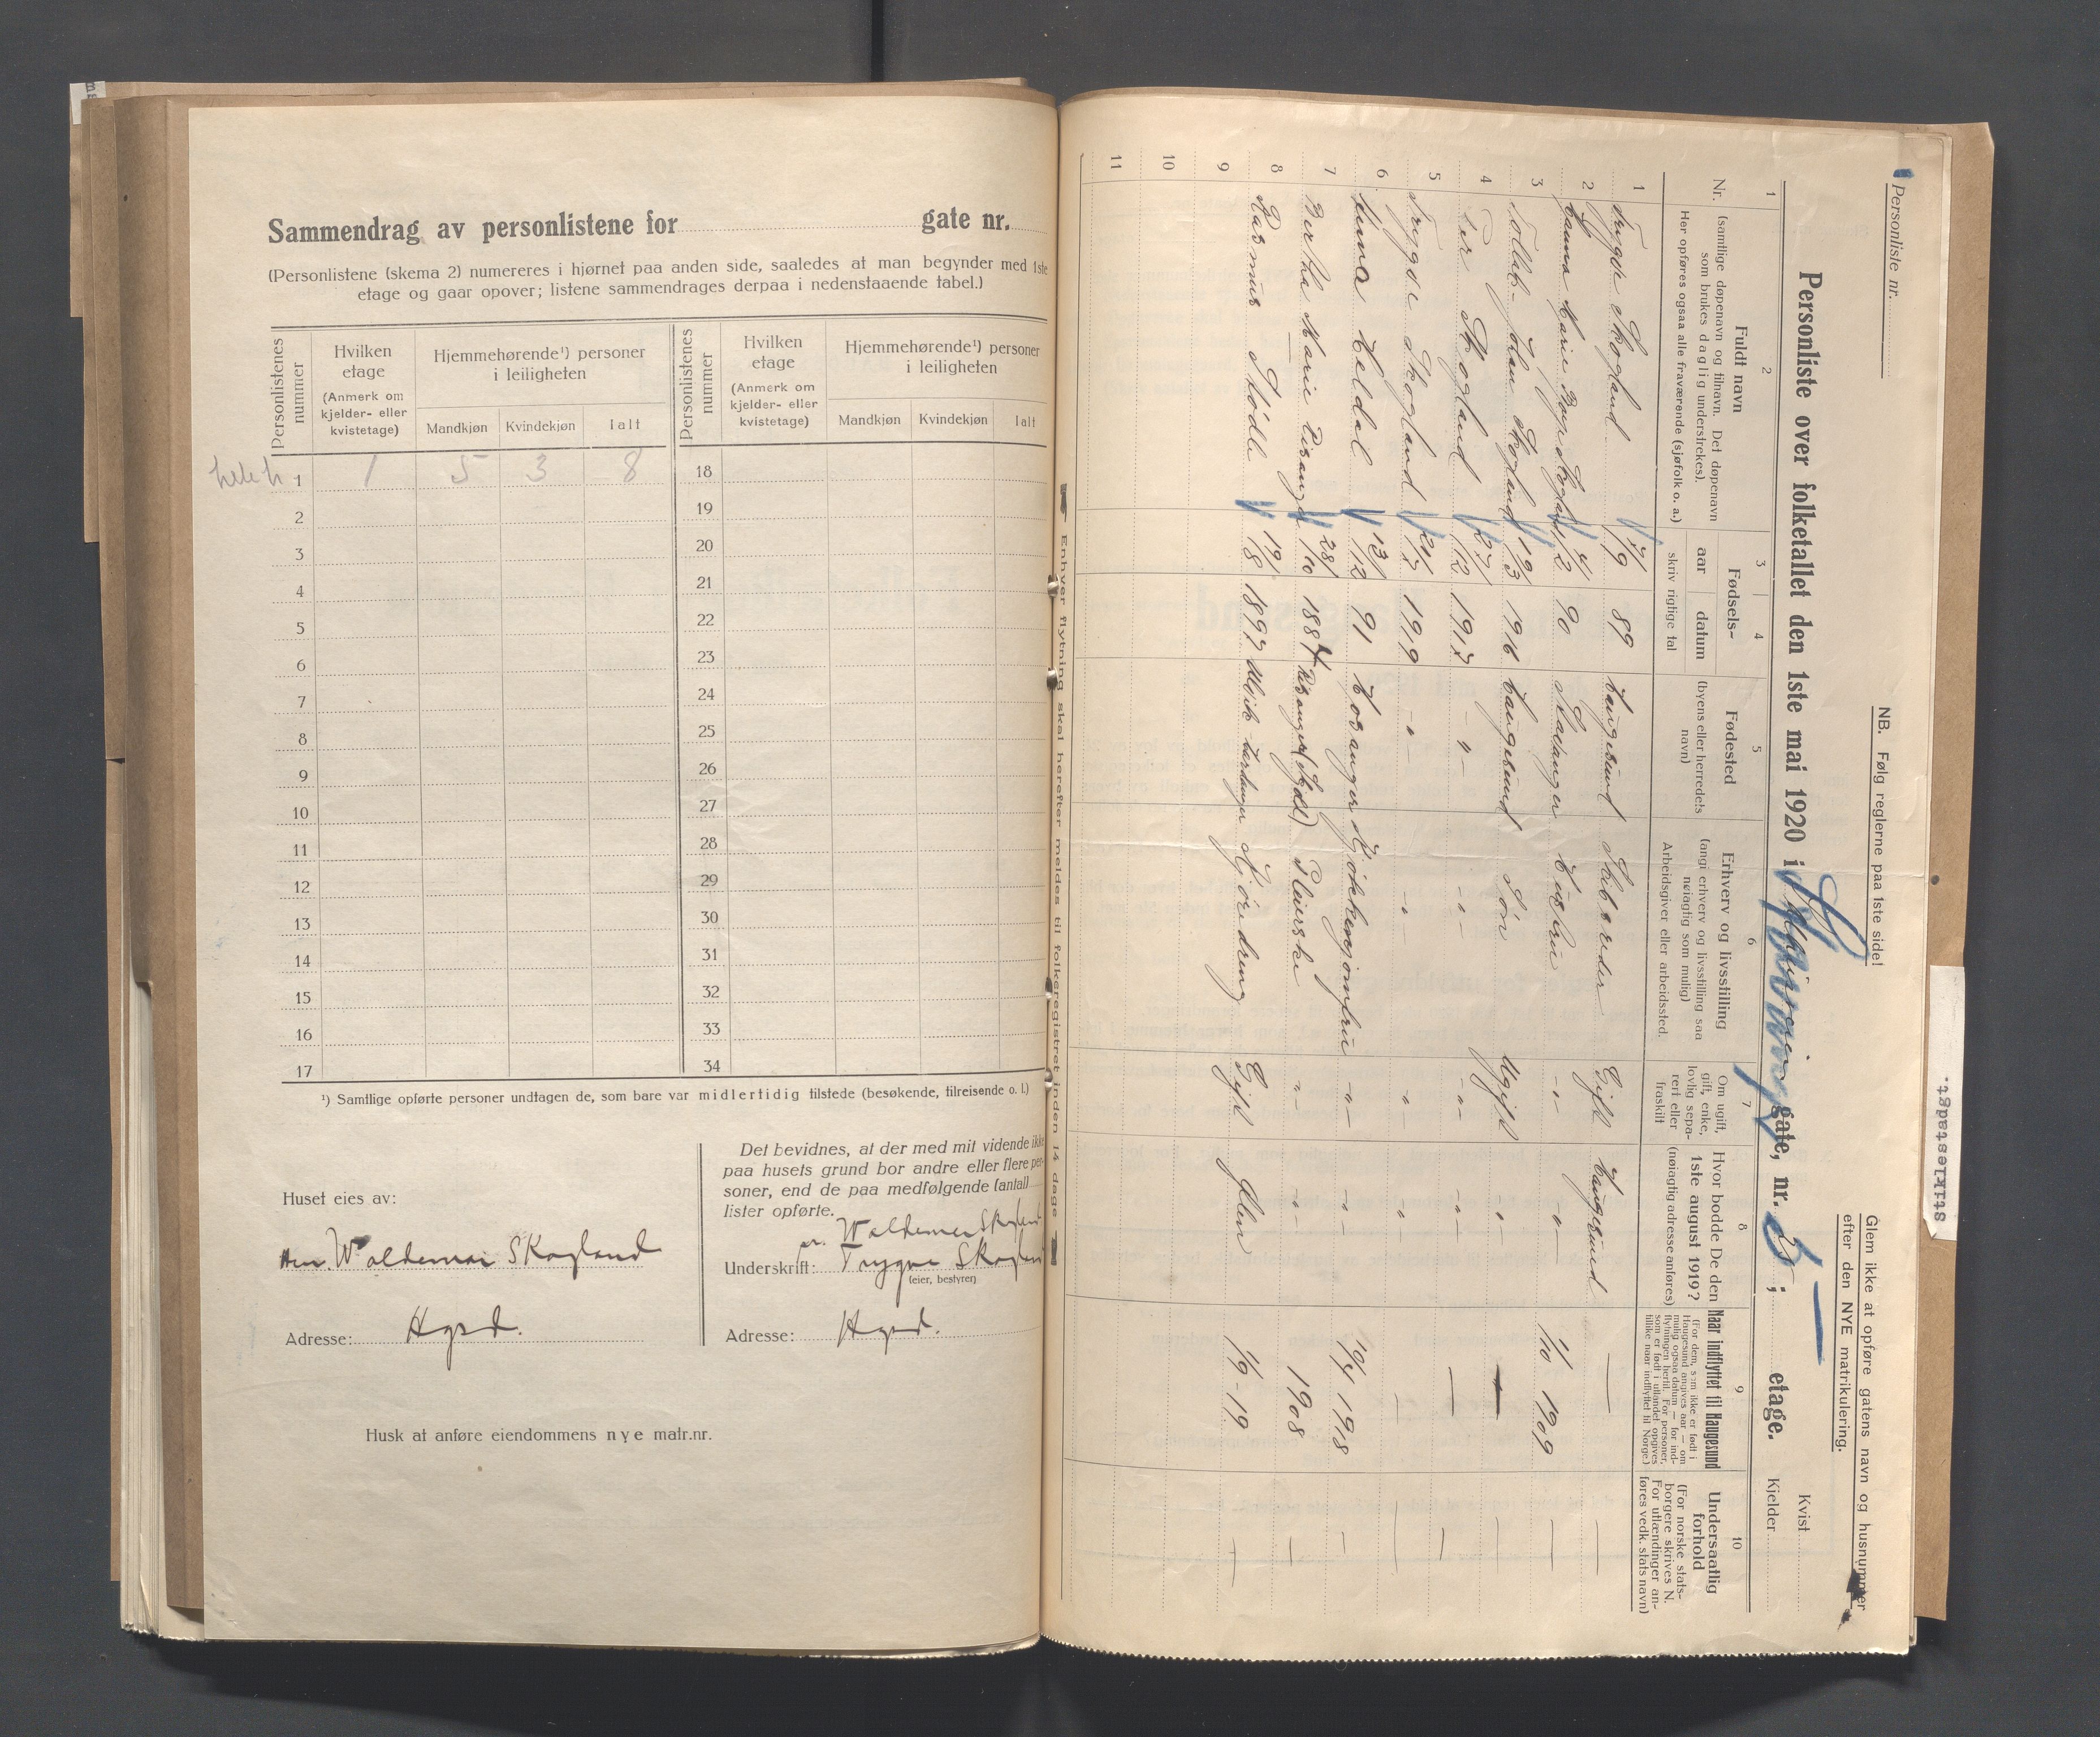 Sammendrag av personlistene for gate nr.
(Personlistene (skema 2) numereres i hjørnet paa anden side, saaledes at man begynder med 1ste
etage og gaar opover; listene sammendrages derpaa i nedenstaaende tabel.)
Personlistenes nummer
Hvilken etage
(Anmerk om kjelder- eller kvistetage)
Hjemmehørende¹) personer i leiligheten
Mandkjøn Kvindekjøn Ialt
Personlistenes nummer
Hvilken etage
(Anmerk om kjelder- eller kvistetage)
Hjemmehørende¹) personer i leiligheten
Mandkjøn Kvindekjøn Ialt
1 1 5 3 8 18
2 19
3 20
4 21
5 22
6 23
7 24
8 25
9 26
10 27
11 28
12 29
13 30
14 31
15 32
16 33
17 34
¹) Samtlige opførte personer undtagen de, som bare var midlertidig tilstede (besøkende, tilreisende o. l.)
Huset eies av:
Waldemar Skogland
Adresse: Hgsd.
Det bevidnes, at der med mit vidende ikke
paa husets grund bor andre eller flere per-
soner, end de paa medfølgende (antall
lister opførte.
Waldemar Skogland
Underskrift: Trygve Skogland
(eier, bestyrer)
Adresse: Hgsd.
Husk at anføre eiendommens nye matr.nr.
Enhver flytning skal herefter meldes til folkeregistret inden 14 dage
Personliste nr.
NB. Følg reglerne paa 1ste side!
Glem ikke at opføre gatens navn og husnummer
efter den NYE matrikulering.
Personliste over folketallet den 1ste mai 1920 i gate, nr. ; etage.
Kvist
Kjelder
1 2 3 4 5 6 7 8 9 10
Nr.
Fuldt navn
(samtlige døpenavn og tilnavn. Det døpenavn
som brukes daglig understrekes).
Her opføres ogsaa alle fraværende (sjøfolk o. a.)
Fødsels-
aar datum
skriv rigtige tal
Fødested
(byens eller herredets
navn)
Erhverv og livsstilling
(angi erhverv og livsstilling saa
nøiagtig som mulig)
Arbeidsgiver eller arbeidssted.
Om ugift,
gift, enke,
lovlig sepa-
rert eller
fraskilt
Hvor bodde De den
1ste august 1919?
(nøiagtig adresse anføres)
Naar indflyttet til Haugesund
(For dem, som ikke er født i
Haugesund angives aar — om
mulig ogsaa datum — for ind-
flytningen hertil. For personer,
som er født i utlandet opgives
tillike naar indflyttet til Norge.)
Undersaatlig
forhold
(For norske stats-
borgere skrives N.
For utlændinger an-
føres vedk. stats navn)
1 Trygve Skogland 7/9 89 Haugesund Skibsreder Gift Haugesund — —
2 Hanna Marie Skogland 4/2 90 Stavanger Husfru -"- -"- 1/10 1909 —
3 Skogland 19/3 1916 Haugesund Søn Ugift -"- — —
4 Per Skogland 27/12 1917 -"- -"- -"- -"- — —
5 Trygve Skogland 21/7 1919 -"- -"- " " — —
6 Heldal 13/12 91 Kjøkkenjomfru -"- -"- 1918 —
7 Bertha Marie Risanger 28/10 1884 Risanger Pleierske -"- -"- 1908 —
8 Rasmus 19/8 1897 Gift Ølen 1/9-19 —
9
10
11
Stiklestadgt.